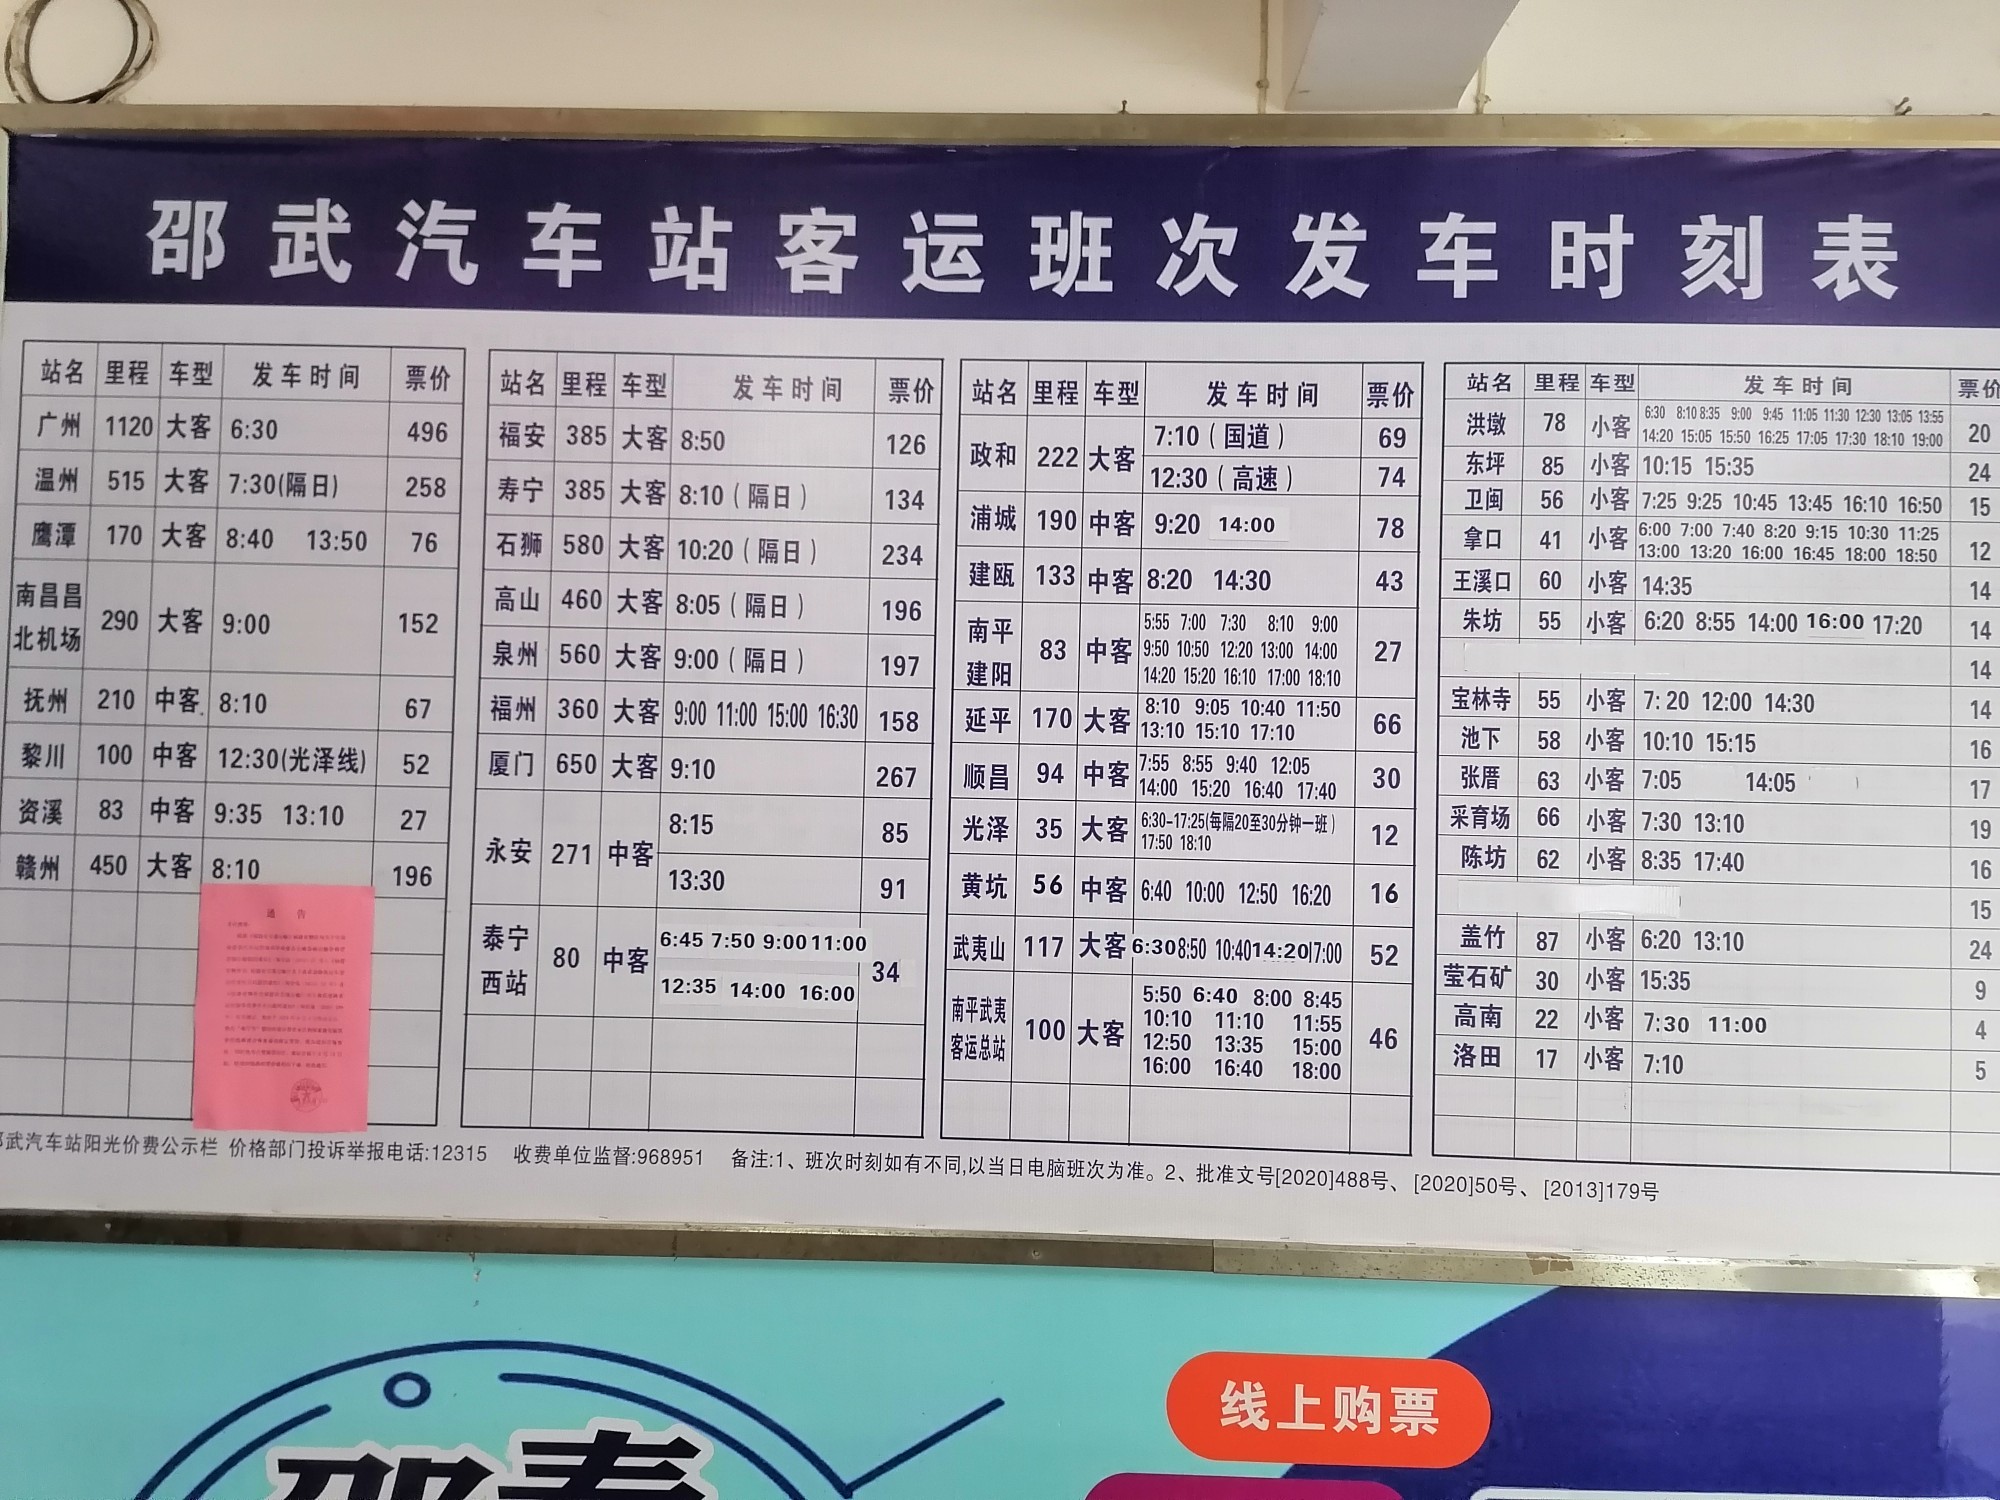 邵武汽车站客运班次发车时刻表
站名 里程 车型 发车时间 票价
广州 1120 大客 6:30 496
温州 515 大客 7:30(隔日) 258
鹰潭 170 大客 8:40 13:50 76
南昌昌
北机场 290 大客 9:00 152
抚州 210 中客 8:10 67
黎川 100 中客 12:30(光泽线) 52
资溪 83 中客 9:35 13:10 27
赣州 450 大客 8:10 196
通告
站名 里程 车型 发车时间 票价
福安 385 大客 8:50 126
寿宁 385 大客 8:10(隔日) 134
石狮 580 大客 10:20(隔日) 234
高山 460 大客 8:05(隔日) 196
泉州 560 大客 9:00(隔日) 197
福州 360 大客 9:00 11:00 15:00 16:30 158
厦门 650 大客 9:10 267
永安 271 中客 8:15 85
13:30 91
泰宁
西站 80 中客 6:45 7:50 9:00 11:00
12:35 14:00 16:00 34
站名 里程 车型 发车时间 票价
政和 222 大客 7:10(国道) 69
12:30(高速) 74
浦城 190 中客 9:20 14:00 78
建瓯 133 中客 8:20 14:30 43
南平
建阳 83 中客 5:55 7:00 7:30 8:10 9:00
9:50 10:50 12:20 13:00 14:00
14:20 15:20 16:10 17:00 18:10 27
延平 170 大客 8:10 9:05 10:40 11:50
13:10 15:10 17:10 66
顺昌 94 中客 7:55 8:55 9:40 12:05
14:00 15:20 16:40 17:40 30
光泽 35 大客 6:30-17:25(每隔20至30分钟一班)
17:50 18:10 12
黄坑 56 中客 6:40 10:00 12:50 16:20 16
武夷山 117 大客 6:30 8:50 10:40 14:20 17:00 52
南平武夷
客运总站 100 大客 5:50 6:40 8:00 8:45
10:10 11:10 11:55
12:50 13:35 15:00
16:00 16:40 18:00 46
站名 里程 车型 发车时间 票价
洪墩 78 小客 6:30 8:10 8:35 9:00 9:45 11:05 11:30 12:30 13:05 13:55
14:20 15:05 15:50 16:25 17:05 17:30 18:10 19:00 20
东坪 85 小客 10:15 15:35 24
卫闽 56 小客 7:25 9:25 10:45 13:45 16:10 16:50 15
拿口 41 小客 6:00 7:00 7:40 8:20 9:15 10:30 11:25
13:00 13:20 16:00 16:45 18:00 18:50 12
王溪口 60 小客 14:35 14
朱坊 55 小客 6:20 8:55 14:00 16:00 17:20 14
14
宝林寺 55 小客 7:20 12:00 14:30 14
池下 58 小客 10:10 15:15 16
张厝 63 小客 7:05 14:05 17
采育场 66 小客 7:30 13:10 19
陈坊 62 小客 8:35 17:40 16
15
盖竹 87 小客 6:20 13:10 24
莹石矿 30 小客 15:35 9
高南 22 小客 7:30 11:00 4
洛田 17 小客 7:10 5
武汽车站阳光价费公示栏 价格部门投诉举报电话:12315 收费单位监督:968951 备注:1、班次时刻如有不同,以当日电脑班次为准。2、批准文号[2020]488号、[2020]50号、[2013]179号
线上购票